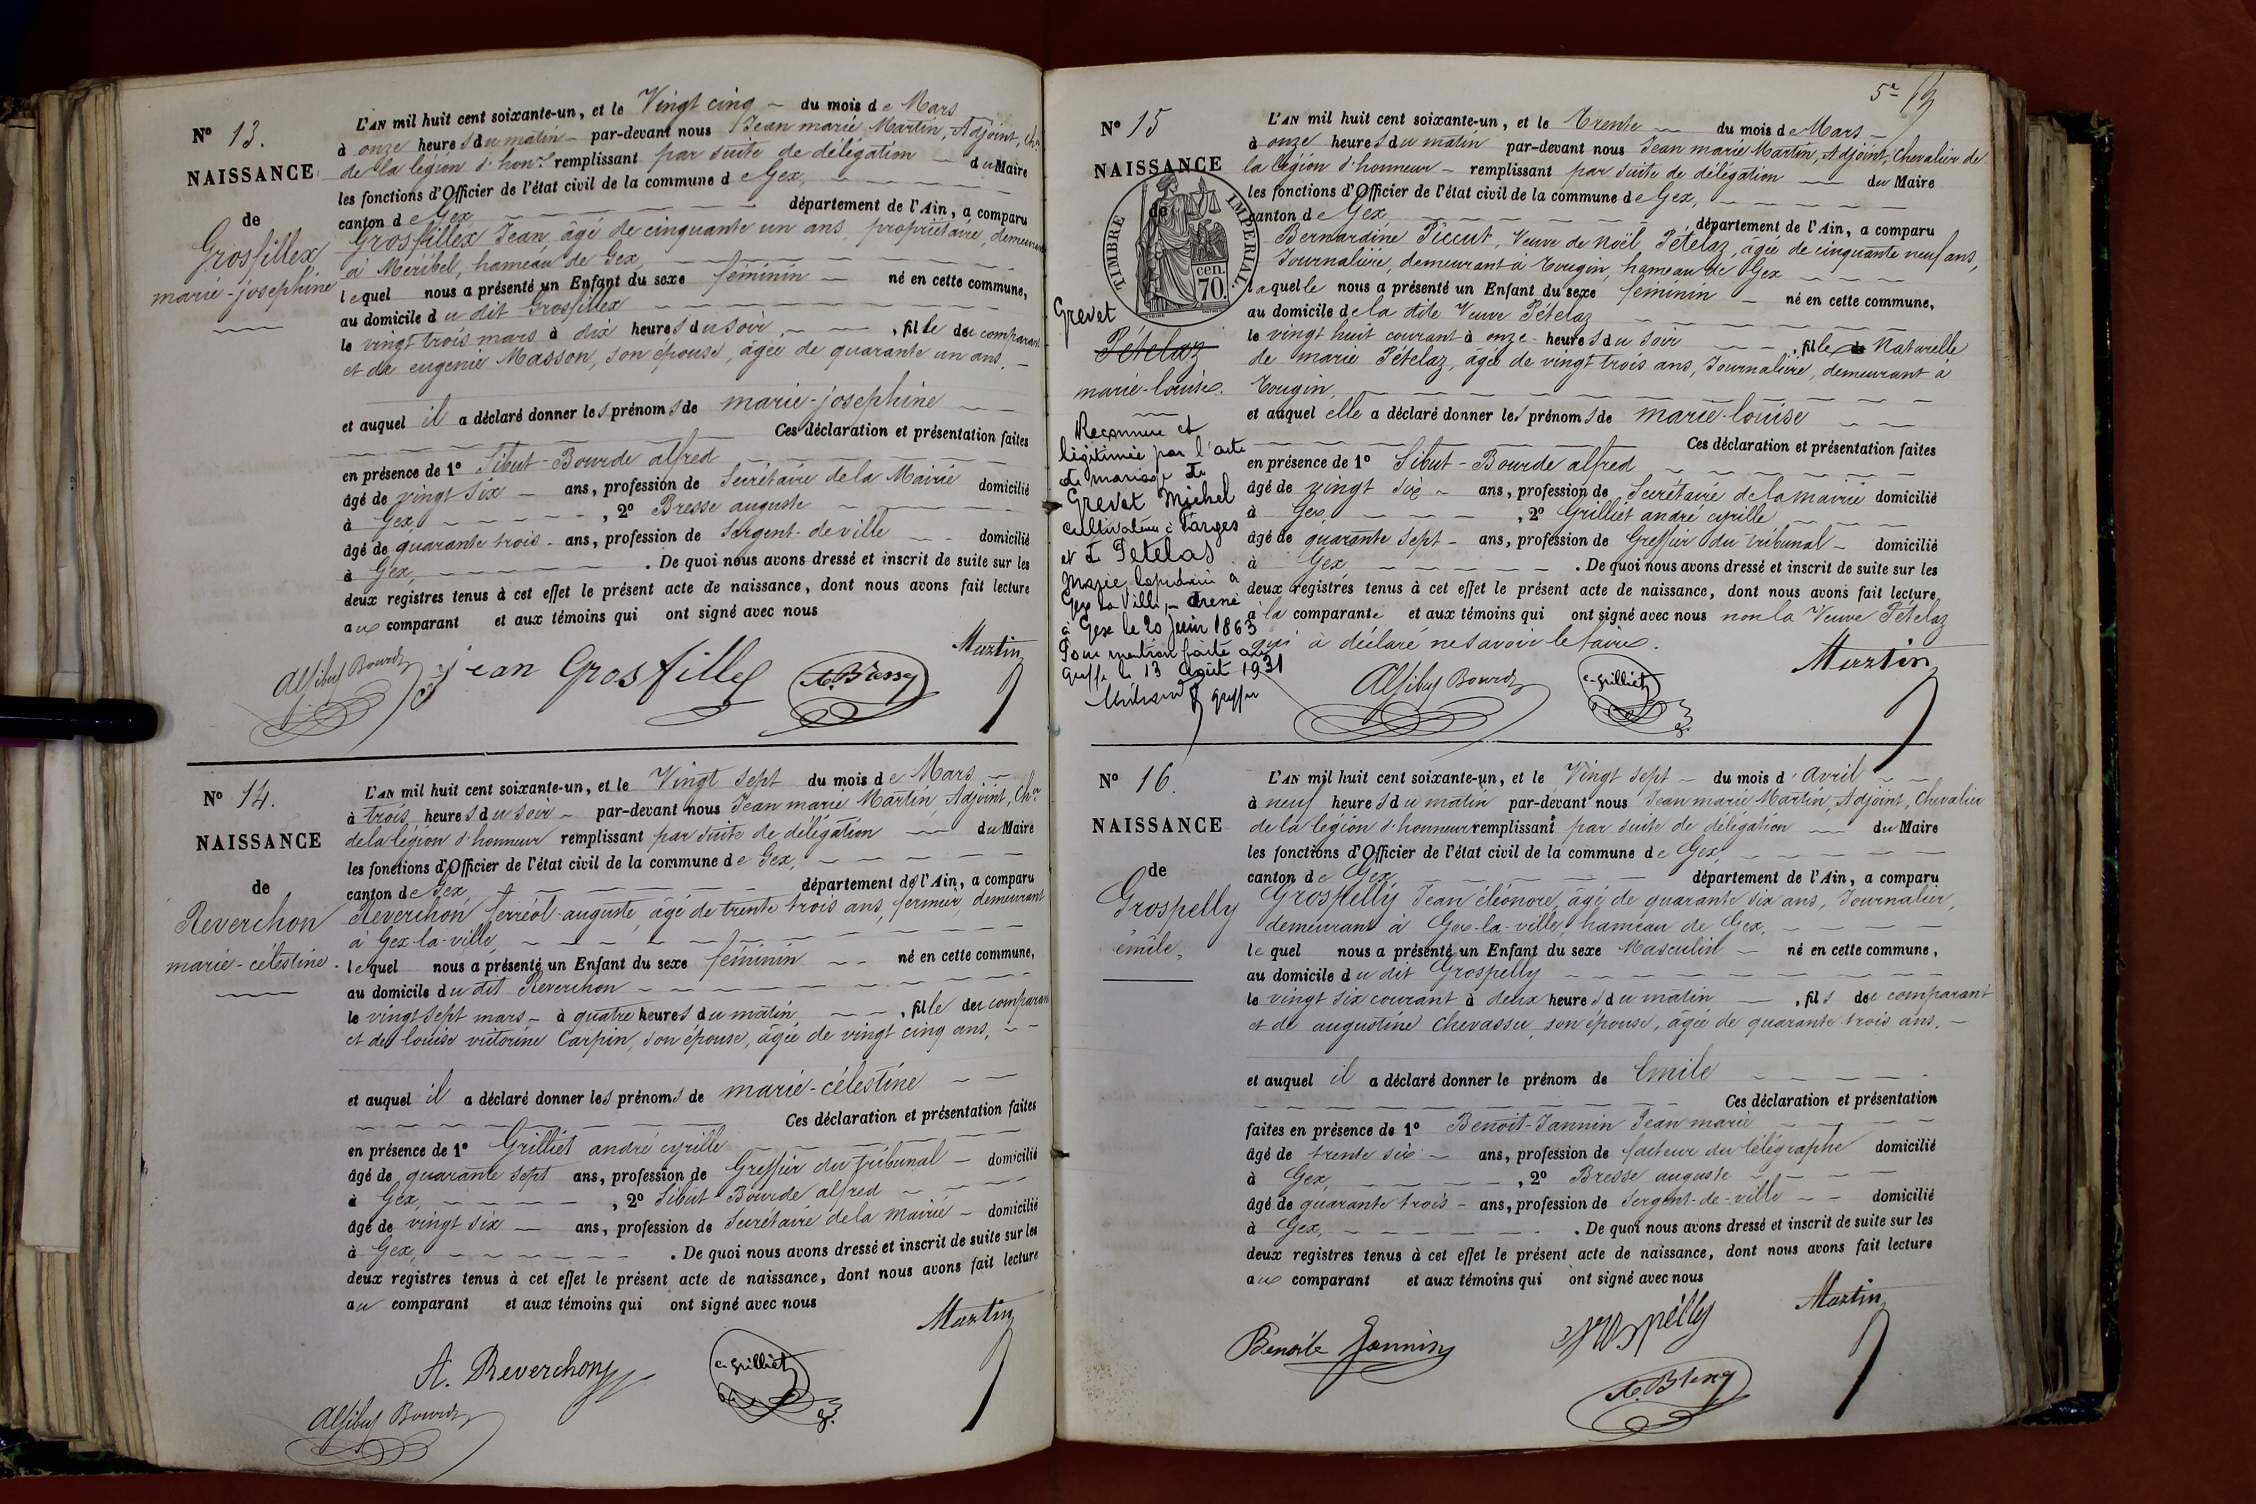 N° 13.
NAISSANCE
de
Grosfillex
marie-josephine
L'AN mil huit cent soixante-un, et le Vingt cinq du mois de Mars
à onze heures du matin par-devant nous Jean marie Martin, Adjoint, Chr
de la légion d'honr remplissant par suite de délégation du Maire
les fonctions d'Officier de l'état civil de la commune de Gex,
canton de Gex département de l'Ain, a comparu
Grosfillex Jean, âgé de cinquante un ans, propriétaire, demeurant
à Méribel, hameau de Gex,
lequel nous a présenté un Enfant du sexe féminin né en cette commune,
au domicile du dit Grosfillex
le vingt trois mars à dix heures du soir, fille du comparant
et de eugenie Masson, son épouse, âgée de quarante un ans.
et auquel il a déclaré donner les prénoms de marie-josephine
Ces déclaration et présentation faites
en présence de 1° Sibut-Bourde alfred
âgé de vingt six ans, profession de Secrétaire de la Mairie domicilié
à Gex, 2° Bresse auguste
âgé de quarante trois ans, profession de Sergent-de ville domicilié
à Gex, . De quoi nous avons dressé et inscrit de suite sur les
deux registres tenus à cet effet le présent acte de naissance, dont nous avons fait lecture
aux comparant et aux témoins qui ont signé avec nous
Martin
Alf Sibut Bourde jean Grosfillex A. Bresse
N° 14.
NAISSANCE
de
Reverchon
marie-célestine.
L'AN mil huit cent soixante-un, et le Vingt Sept du mois de Mars
à trois heures du soir par-devant nous Jean marie Martin, Adjoint, Chr
de la légion d'honneur remplissant par suite de délégation du Maire
les fonctions d'Officier de l'état civil de la commune de Gex,
canton de Gex, département de l'Ain, a comparu
Reverchon ferréol-auguste, âgé de trente trois ans, fermier, demeurant
à Gex-la-ville,
lequel nous a présenté un Enfant du sexe féminin né en cette commune,
au domicile du dit Reverchon
le vingt sept mars à quatre heures du matin, fille du comparant
et de louise victorine Carpin, son épouse, âgée de vingt cinq ans,
et auquel il a déclaré donner les prénoms de marie-célestine
Ces déclaration et présentation faites
en présence de 1° Grilliet andré cyrille
âgé de quarante sept ans, profession de Greffier du tribunal domicilié
à Gex, 2° Sibut-Bourde alfred
âgé de vingt six ans, profession de Secrétaire de la mairie domicilié
à Gex, . De quoi nous avons dressé et inscrit de suite sur les
deux registres tenus à cet effet le présent acte de naissance, dont nous avons fait lecture
au comparant et aux témoins qui ont signé avec nous
Martin
A. Reverchon c. grilliet
Alf Sibut Bourde
N° 15
NAISSANCE
de
TIMBRE IMPERIAL.
cen.
70.
Grevet
Pételaz
marie-louise.
Reconnue et
légitimée par l'acte
de mariage de
Grevet Michel
cultivateur à Farges
et de Pételas
Marie lapidaire à
Gex la Ville, dressé
à Gex le 20 Juin 1863
Pour mention faite au
greffe le 13 Août 1931
greffier
5e
L'AN mil huit cent soixante-un, et le Trente du mois de Mars
à onze heures du matin par-devant nous Jean marie Martin, Adjoint, Chevalier de
la légion d'honneur remplissant par suite de délégation du Maire
les fonctions d'Officier de l'état civil de la commune de Gex,
canton de Gex département de l'Ain, a comparu
Bernardine Piccut, Veuve de Noël Pételaz, âgée de cinquante neuf ans,
Journalière, demeurant à Tougin, hameau de Gex
laquelle nous a présenté un Enfant du sexe féminin né en cette commune,
au domicile de la dite Veuve Pételaz
le vingt huit courant à onze heures du soir, fille Naturelle
de marie Pételaz, âgée de vingt trois ans, Journalière, demeurant à
Tougin,
et auquel elle a déclaré donner les prénoms de marie-louise
Ces déclaration et présentation faites
en présence de 1° Sibut-Bourde alfred
âgé de vingt six ans, profession de Secrétaire de la mairie domicilié
à Gex, 2° Grilliet andré cyrille
âgé de quarante sept ans, profession de Greffier du tribunal domicilié
à Gex . De quoi nous avons dressé et inscrit de suite sur les
deux registres tenus à cet effet le présent acte de naissance, dont nous avons fait lecture
à la comparante et aux témoins qui ont signé avec nous non la Veuve Pételaz
qui à déclaré ne savoir le faire.
Martin
Alf Sibut Bourde c. grilliet
N° 16.
NAISSANCE
de
Grospelly
émile,
L'AN mil huit cent soixante-un, et le Vingt sept du mois d'Avril
à neuf heures du matin par-devant nous Jean marie Martin, Adjoint, Chevalier
de la légion d'honneur remplissant par suite de délégation du Maire
les fonctions d'Officier de l'état civil de la commune de Gex,
canton de Gex département de l'Ain, a comparu
Grospelly Jean éléonore, âgé de quarante six ans, Journalier,
demeurant à Gex-la-ville, hameau de Gex,
lequel nous a présenté un Enfant du sexe Masculin né en cette commune,
au domicile du dit Grospelly
le vingt six courant à deux heures du matin, fils du comparant
et de augustine Chevassu, son épouse, âgée de quarante trois ans.
et auquel il a déclaré donner le prénom de Emile
Ces déclaration et présentation
faites en présence de 1° Benoit-Jannin Jean marie
âgé de trente six ans, profession de facteur du télégraphe domicilié
à Gex, 2° Bresse auguste
âgé de quarante trois ans, profession de Sergent-de-ville domicilié
à Gex, . De quoi nous avons dressé et inscrit de suite sur les
deux registres tenus à cet effet le présent acte de naissance, dont nous avons fait lecture
aux comparant et aux témoins qui ont signé avec nous
Martin
Benoit Jannin grospelly
A. Bresse